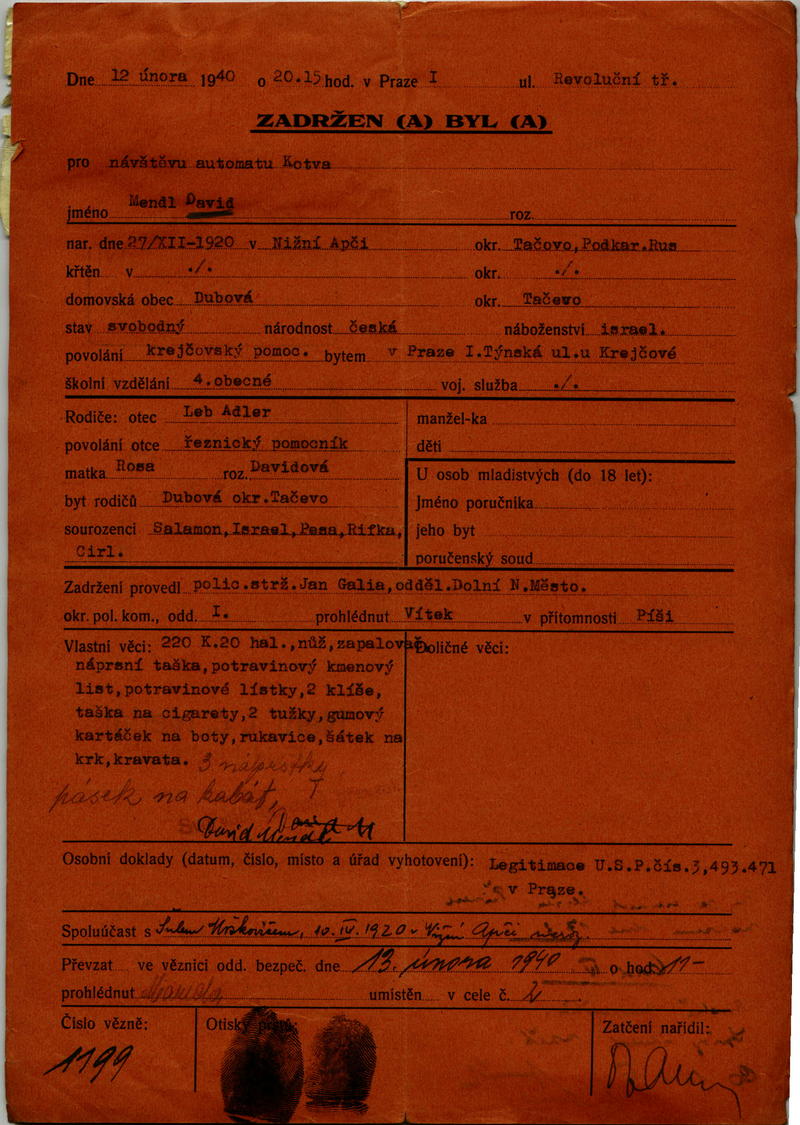 Dne 12 února 1940 o 20.15 hod. v Praze I ul. Revoluční tř.
ZADRŽEN (A) BYL (A)
pro návštěvu automatu Kotva
jméno Mendl David roz.
nar. dne 27/XII-1920 v Nižní Apči okr. Tačovo,Podkar.Rus
křtěn v ./. okr. ./.
domovská obec Dubová okr. Tačevo
stav svobodný národnost česká náboženství israel.
povolání krejčovský pomoc. bytem v Praze I.Týnská ul.u Krejčové
školní vzdělání 4.obecné voj. služba ./.
Rodiče: otec Leb Adler manžel-ka
povolání otce řeznický pomocník děti
matka Rosa roz. Davidová U osob mladistvých (do 18 let):
byt rodičů Dubová okr.Tačevo Jméno poručníka
sourozenci Salamon,Israel,Pesa,Rifka, jeho byt
Cirl. poručenský soud
Zadržení provedl polic.strž.Jan Galia,odděl.Dolní N.Město.
okr. pol. kom., odd. I. prohlédnut Vítek v přítomnosti Píši
Vlastní věci: 220 K.20 hal.,nůž,zapalovač, Doličné věci:
náprsní taška,potravinový kmenový
list,potravinové lístky,2 klíše,
taška na cigarety,2 tužky,gumový
kartáček na boty,rukavice,šátek na
krk,kravata. 3 náprstky
pásek na kabát,
David Mendl
Osobní doklady (datum, číslo, místo a úřad vyhotovení): Legitimace U.S.P.čís.3,493.471
v Praze.
Spoluúčast s 10. IV. 1920 v Apči
Převzat ve věznici odd. bezpeč. dne 13. února 1940 o hod. 11-
prohlédnut umístěn v cele č. 2
Číslo vězně: Otisky prstů: Zatčení nařídil:
1199